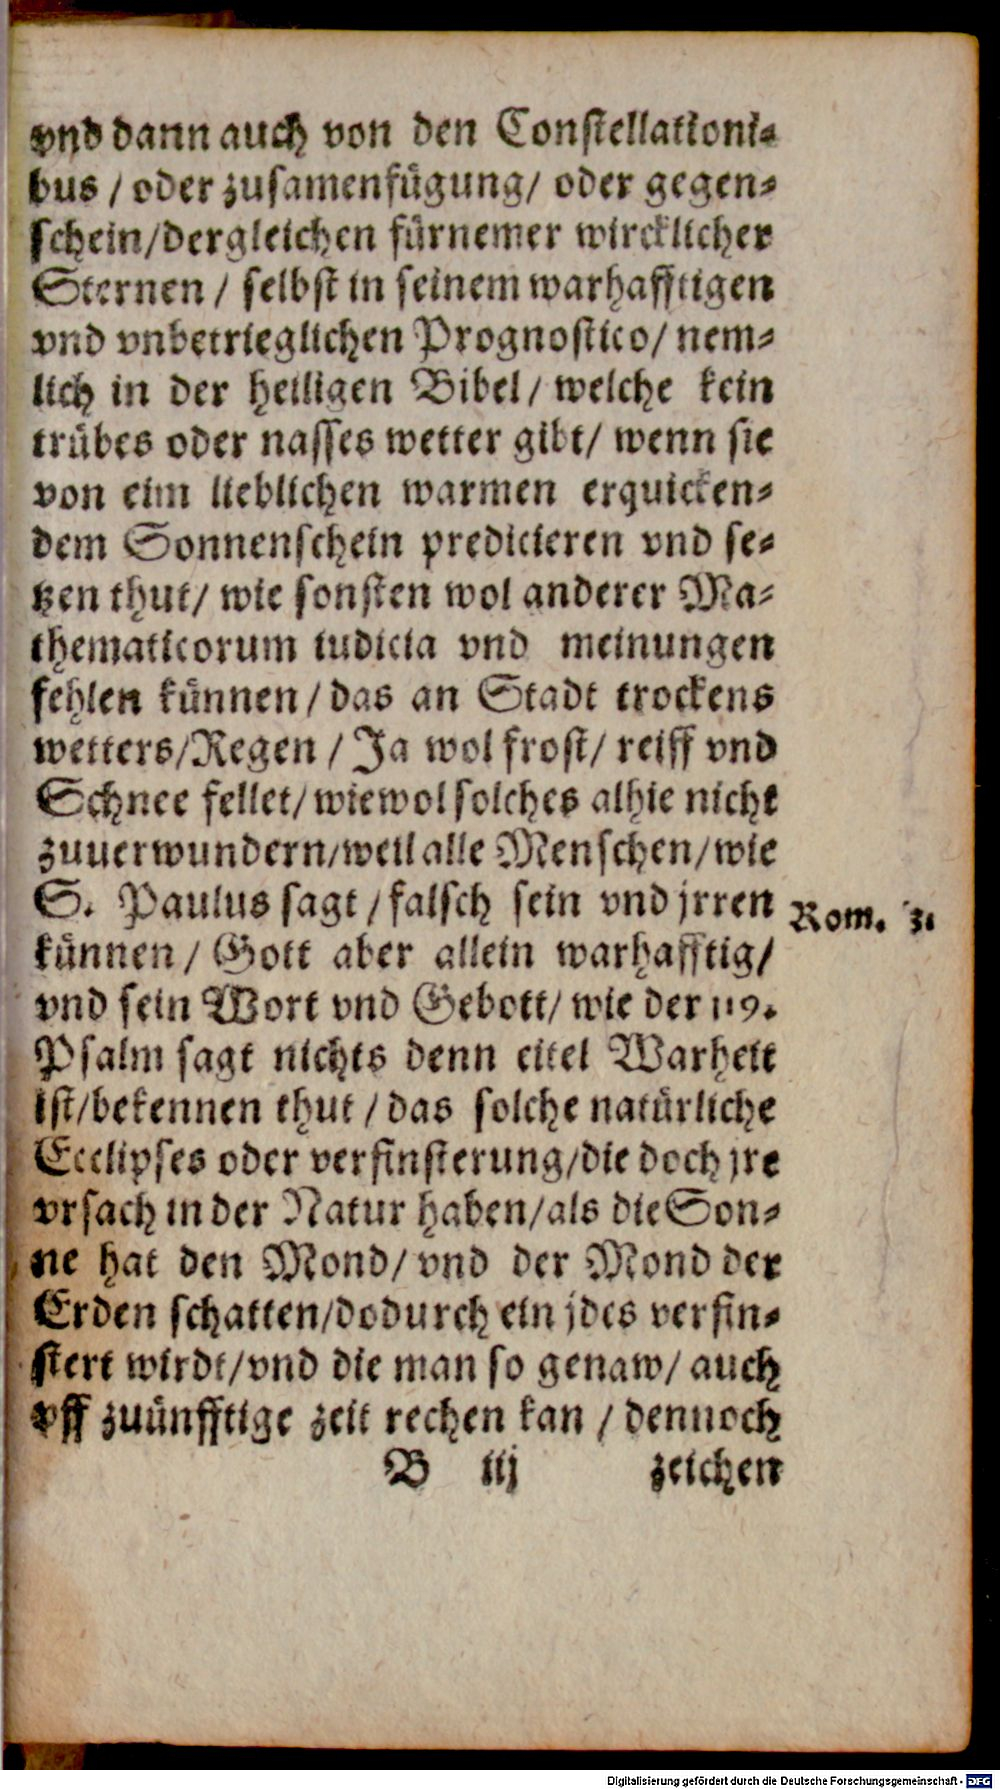 vnd dann auch von den Constellationi-
bus / oder zusamenfügung / oder gegen-
schein / dergleichen fürnemer wircklicher
Sternen / selbst in seinem warhafftigen
vnd vnbetrieglichen Prognostico / nem-
lich in der heiligen Bibel / welche kein
trübes oder nasses wetter gibt / wenn sie
von eim lieblichen warmen erquicken-
dem Sonnenschein predicieren vnd se-
tzen thut / wie sonsten wol anderer Ma-
thematicorum iudicia vnd meinungen
fehlen künnen / das an Stadt trockens
wetters / Regen / Ja wol frost / reiff vnd
Schnee fellet / wiewol solches alhie nicht
zuuerwundern / weil alle Menschen / wie
S. Paulus sagt / falsch sein vnd jrren
Rom. 3.
künnen / Gott aber allein warhafftig /
vnd sein Wort vnd Gebott / wie der 119.
Psalm sagt nichts denn eitel Warheit
ist / bekennen thut / das solche natürliche
Ecclipses oder verfinsterung / die doch jre
vrsach in der Natur haben / als die Son-
ne hat den Mond / vnd der Mond der
Erden schatten / dodurch ein jdes verfin-
stert wirdt / vnd die man so genaw / auch
vff zuünfftige zeit rechen kan / dennoch
B iij zeichen
Digitalisierung gefördert durch die Deutsche Forschungsgemeinschaft - DFG